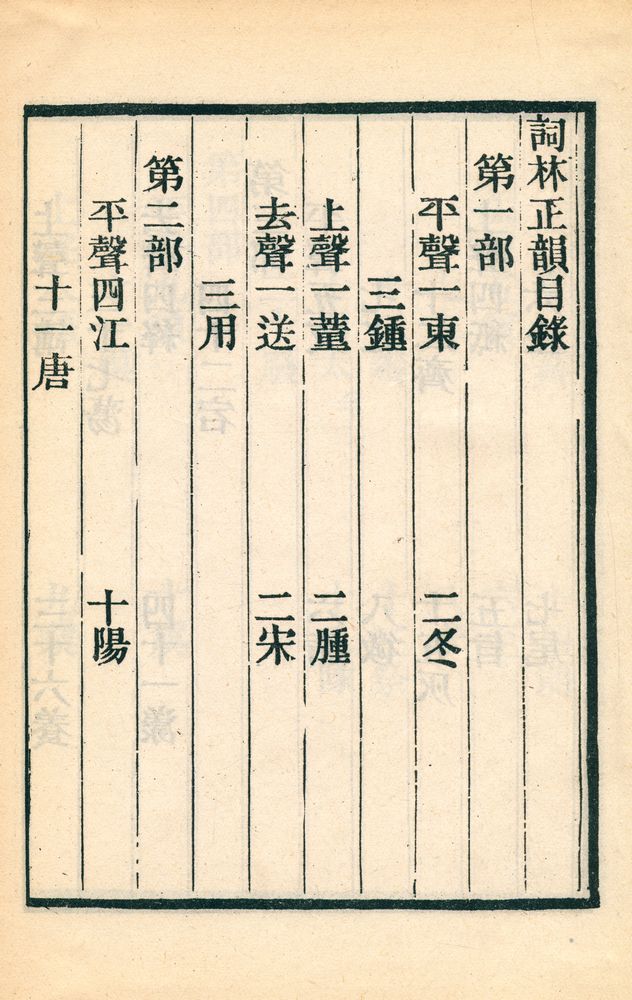 詞林正韻目錄
第一部
平聲一東 二冬
三鍾
上聲一董 二腫
去聲一送 二宋
三用
第二部
平聲四江 十陽
十一唐